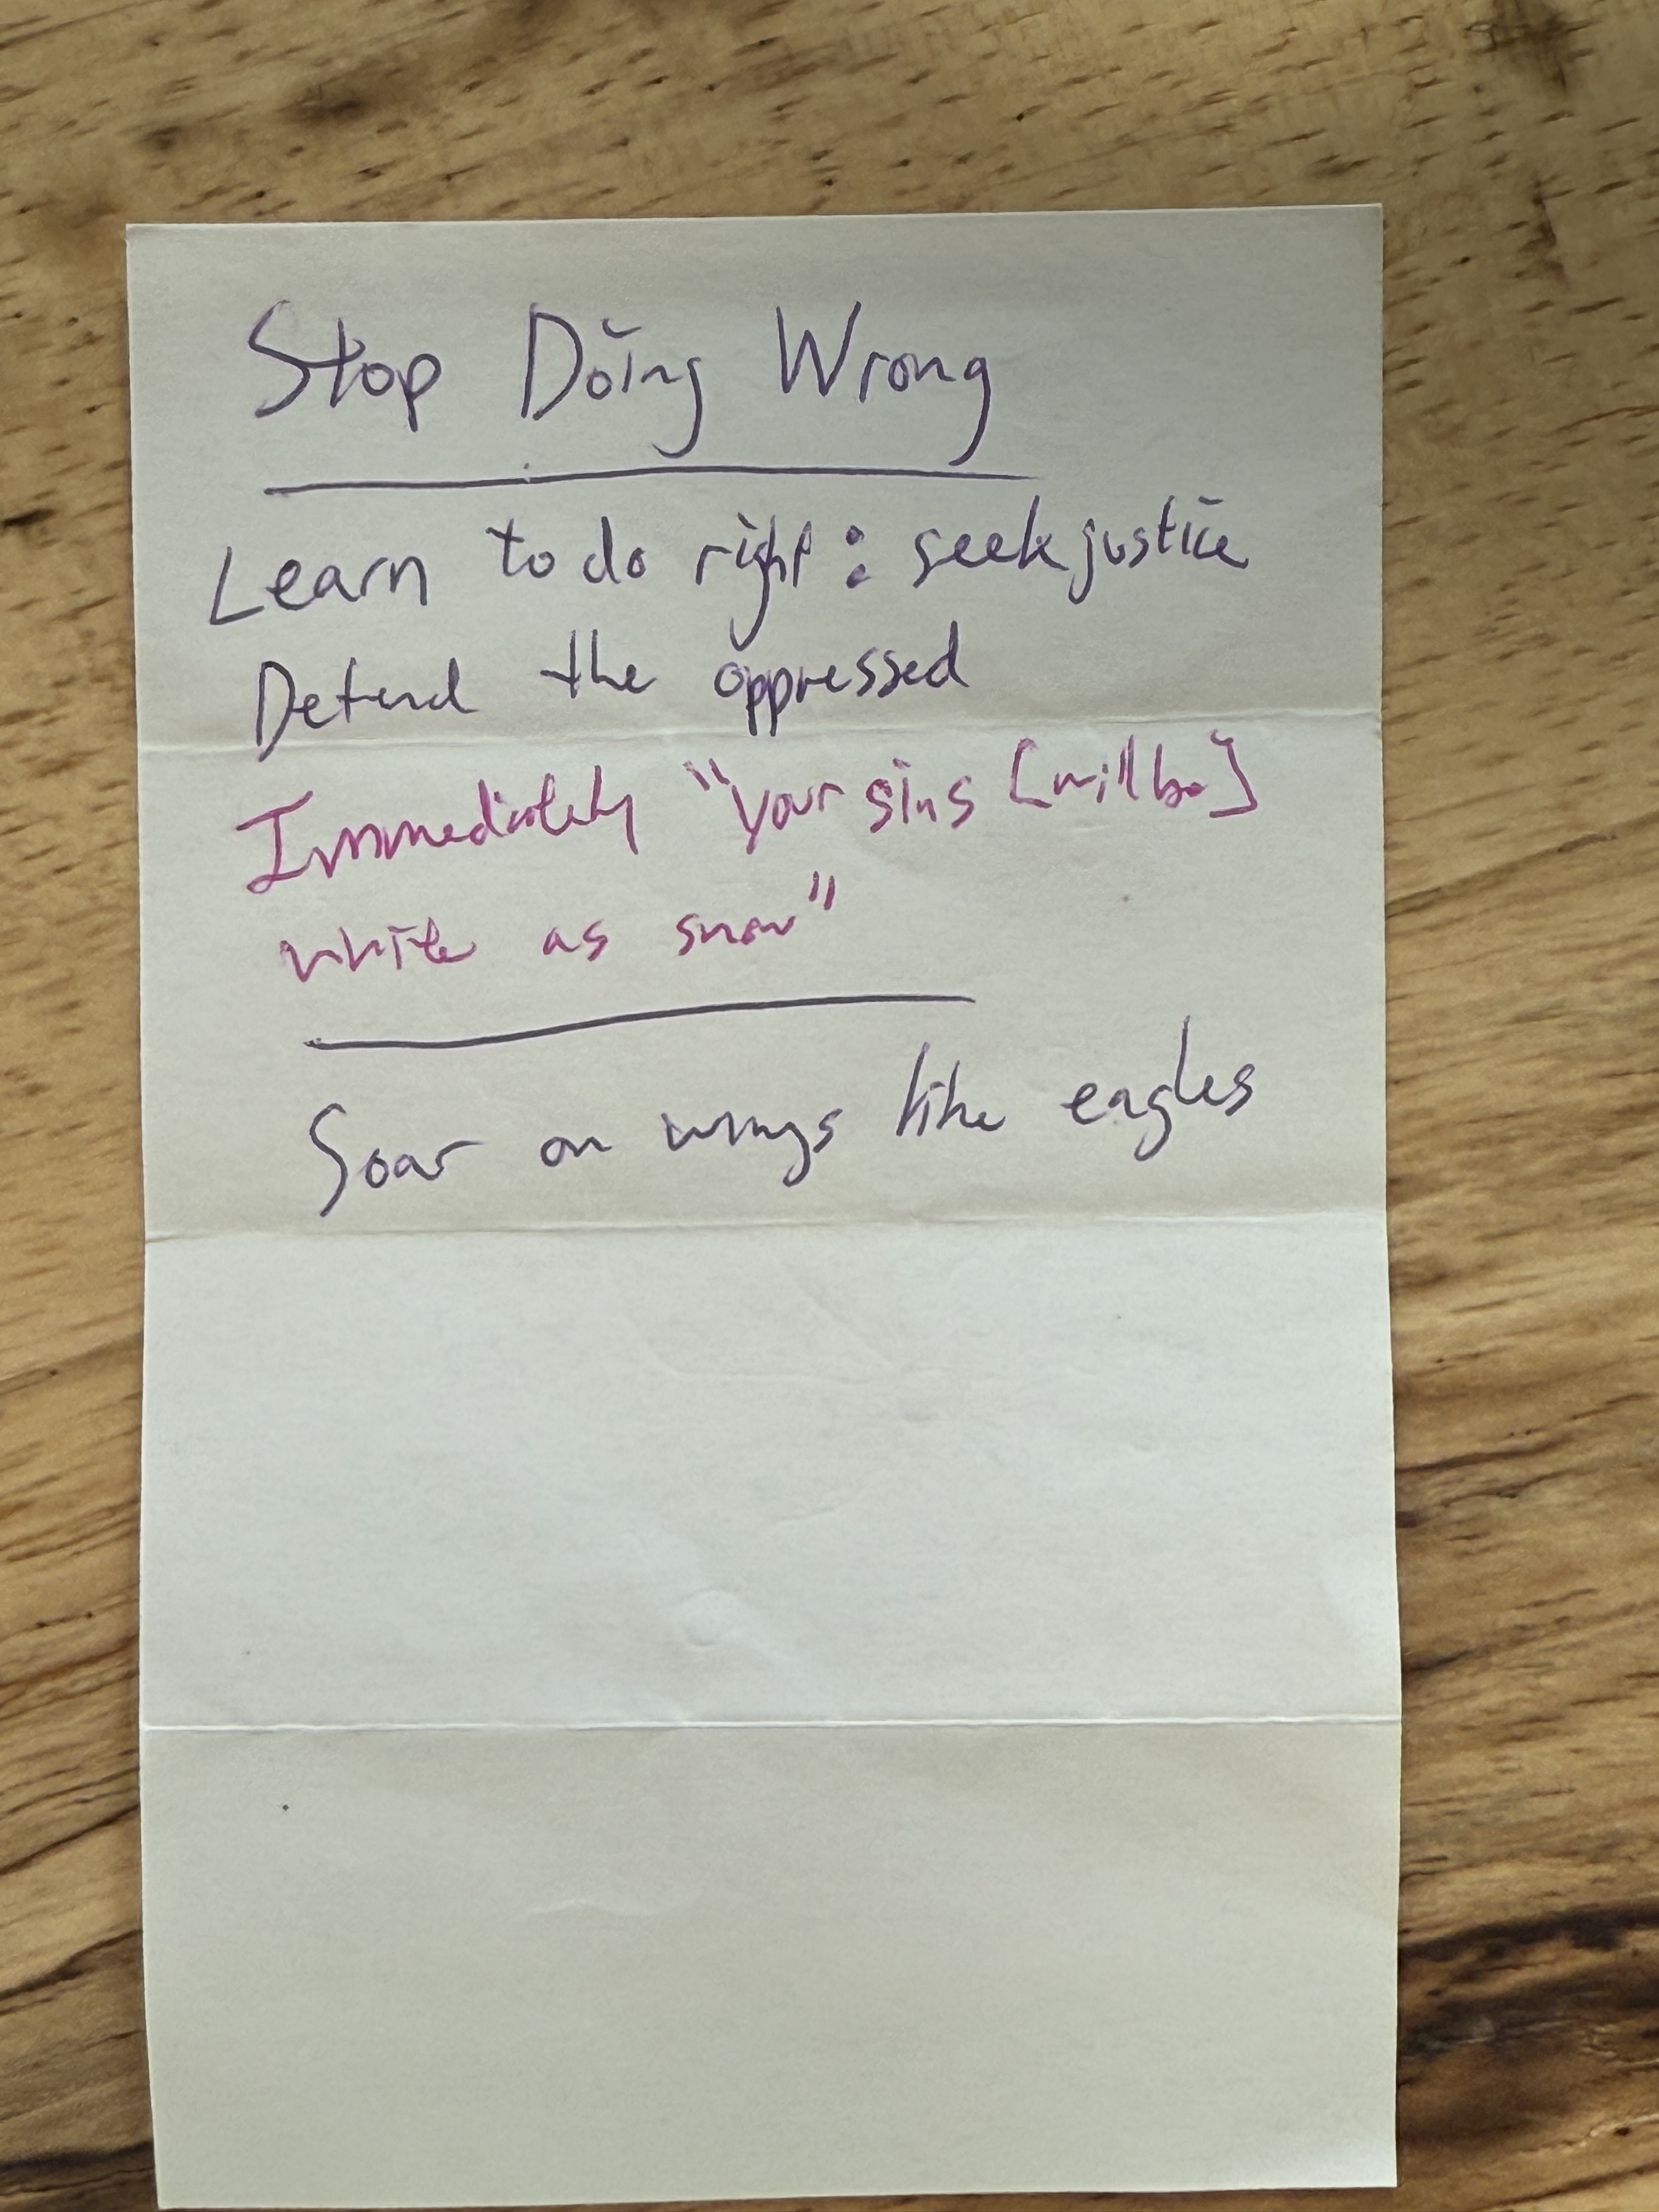 Stop Doing Wrong
Learn to do right: seek justice
Defend the oppressed
Immediately "your sins [will be]
white as snow"
Soar on wings like eagles